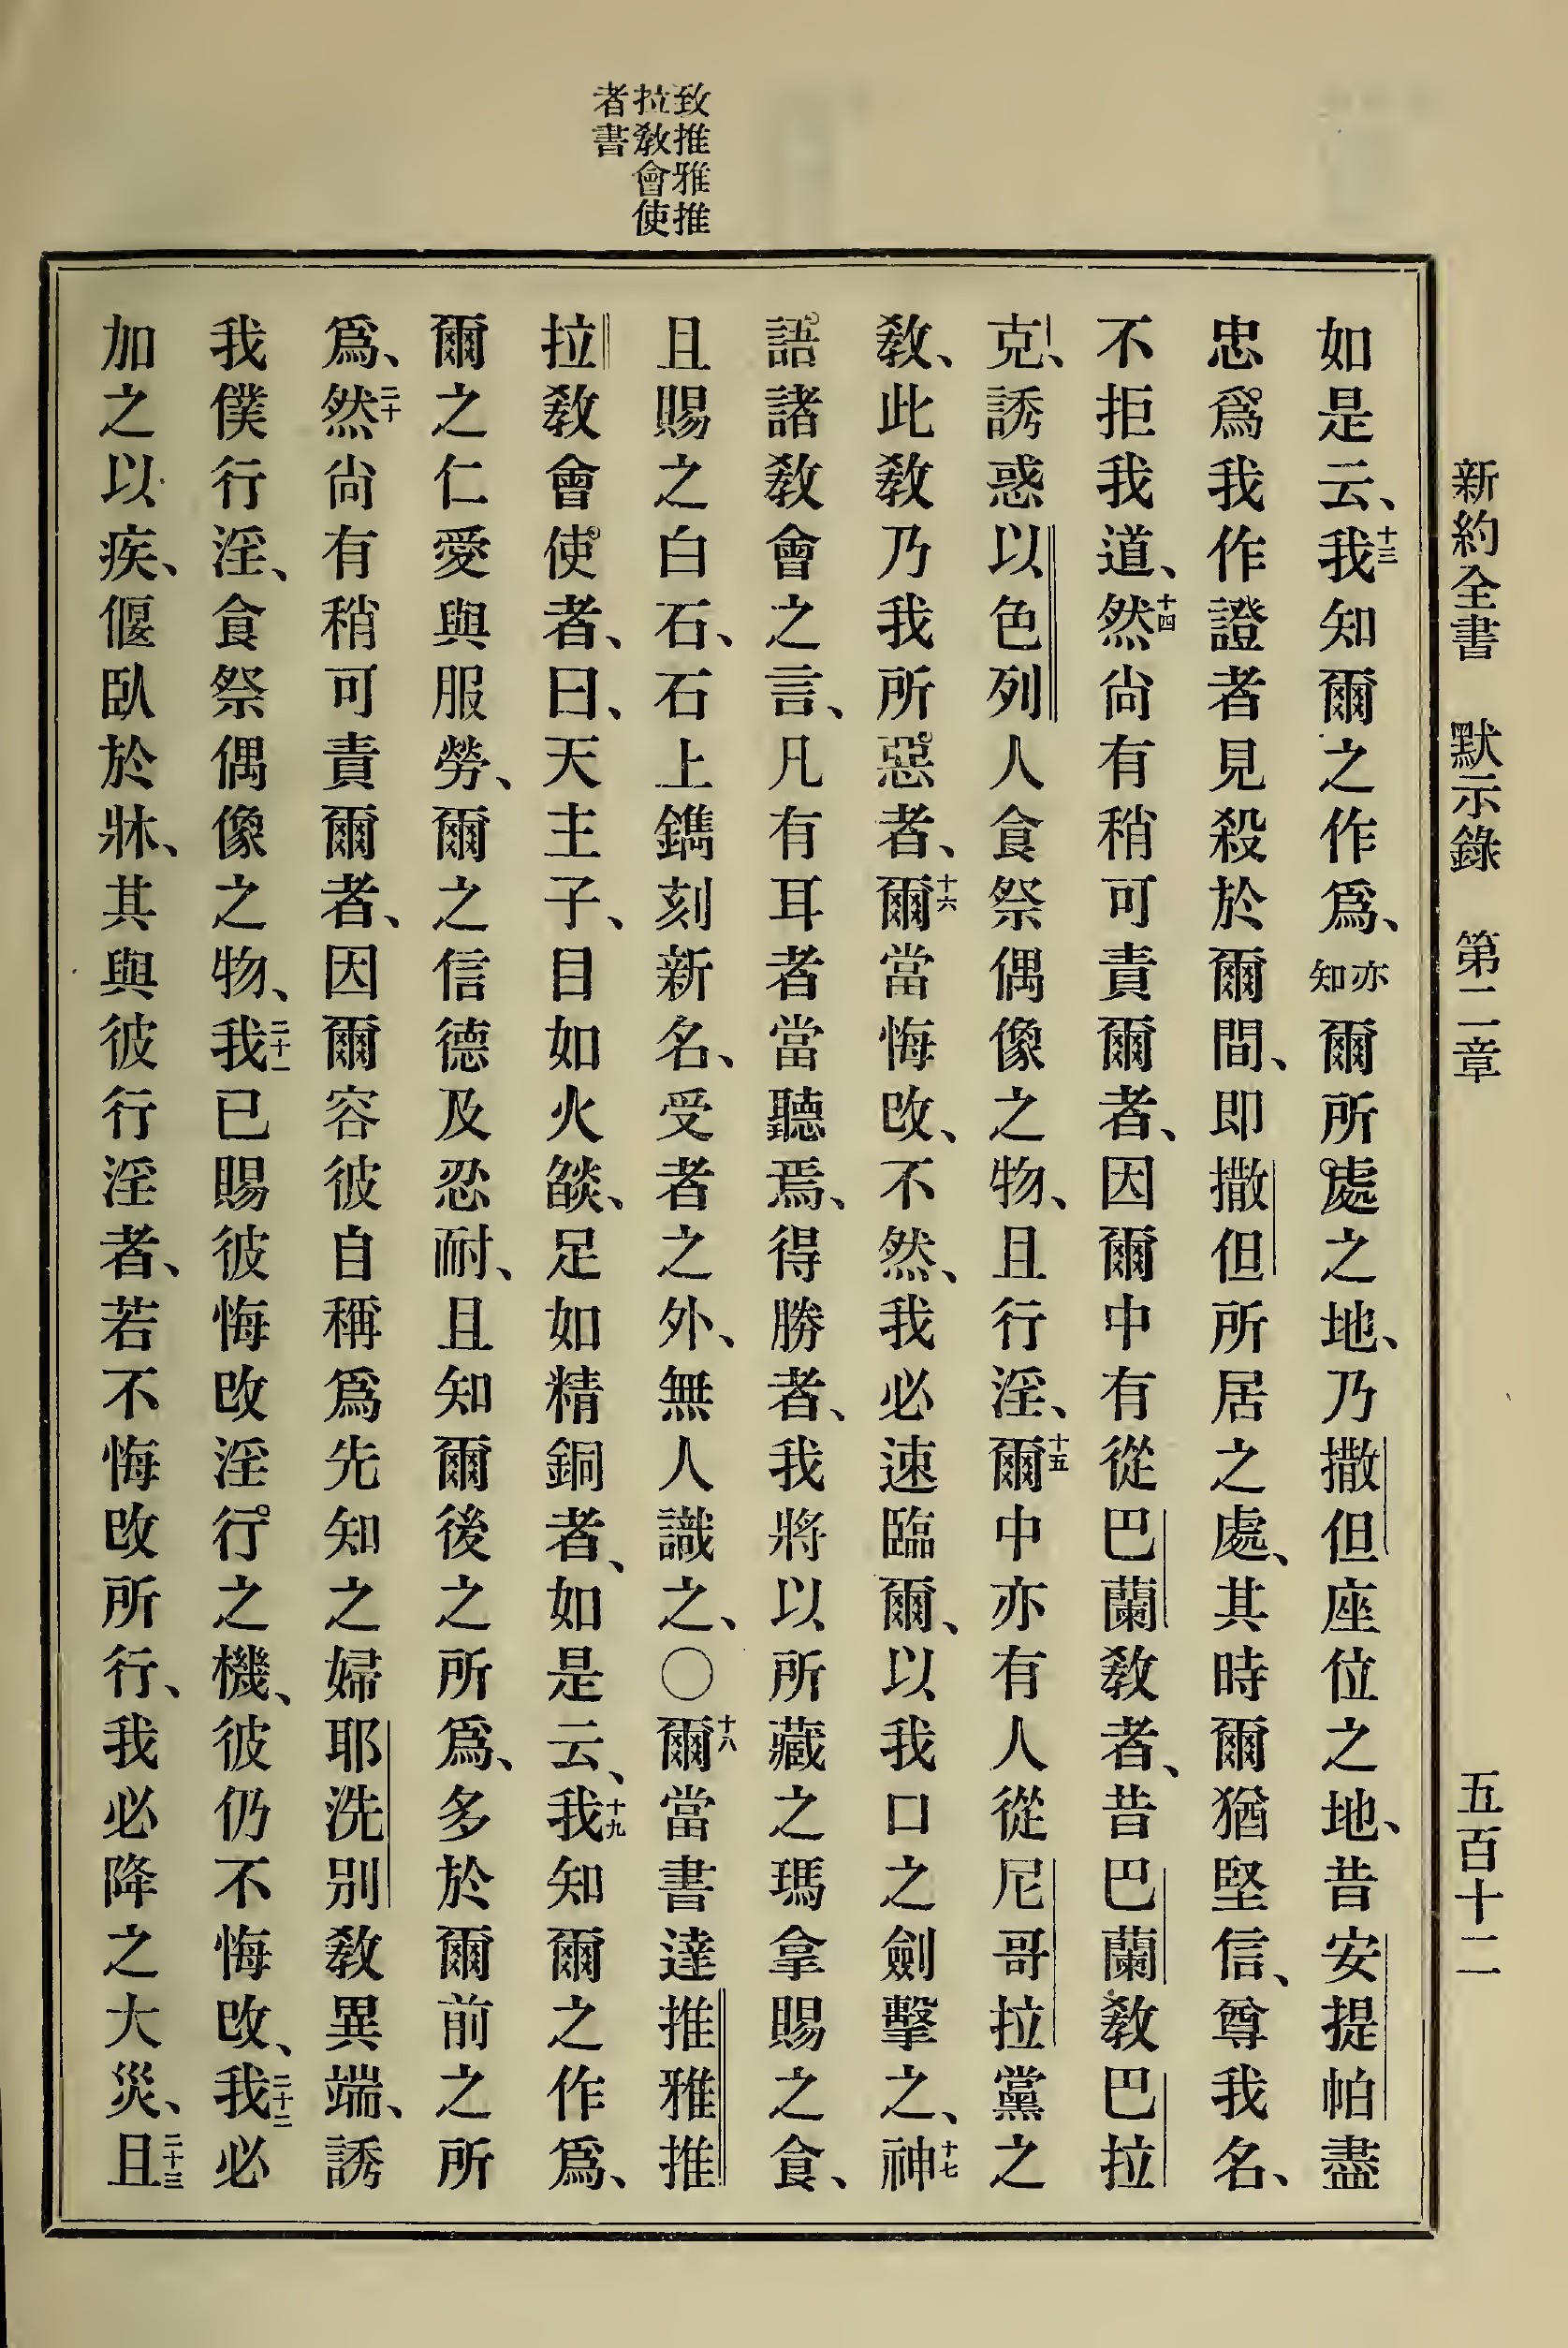 新約全書 默示錄 第二章 五百十二
致推雅推
拉敎會使
者書
如是云、十三我知爾之作爲、亦知爾所處之地、乃撒但座位之地、昔安提帕盡
忠爲我作證者見殺於爾間、即撒但所居之處、其時爾猶堅信、尊我名、
不拒我道、十四然尙有稍可責爾者、因爾中有從巴蘭敎者、昔巴蘭敎巴拉
克、誘惑以色列人食祭偶像之物、且行淫、十五爾中亦有人從尼哥拉黨之
敎、此敎乃我所惡者、十六爾當悔改、不然、我必速臨爾、以我口之劍擊之、十七神
語諸敎會之言、凡有耳者當聽焉、得勝者、我將以所藏之瑪拿賜之食、
且賜之白石、石上鐫刻新名、受者之外、無人識之、〇十八爾當書達推雅推
拉敎會使者、曰、天主子、目如火燄、足如精銅者、如是云、十九我知爾之作爲、
爾之仁愛與服勞、爾之信德及忍耐、且知爾後之所爲、多於爾前之所
爲、二十然尙有稍可責爾者、因爾容彼自稱爲先知之婦耶洗別敎異端、誘
我僕行淫、食祭偶像之物、二十一我已賜彼悔改淫行之機、彼仍不悔改、二十二我必
加之以疾、偃臥於牀、其與彼行淫者、若不悔改所行、我必降之大災、二十三且